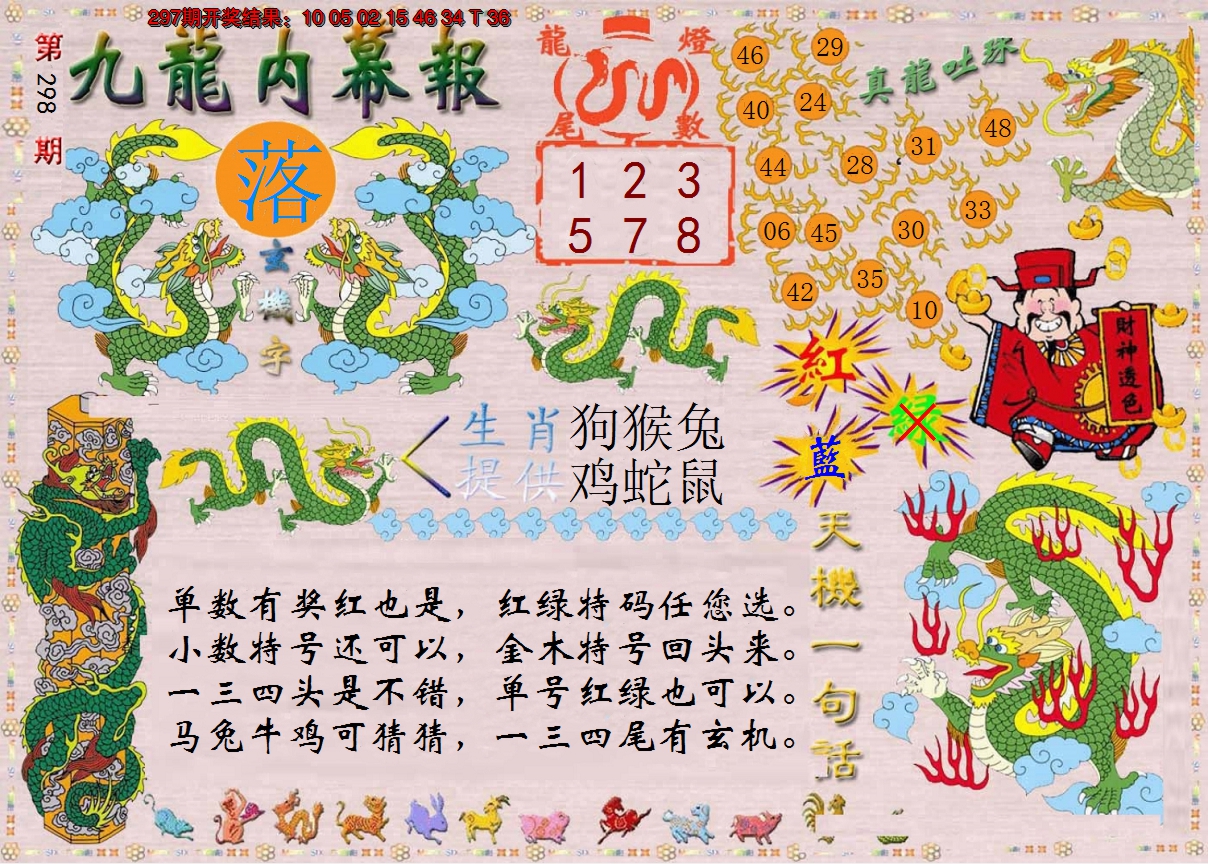 297期开奖结果：10 05 02 15 46 34 T 36
第298期
九龍内幕報
落
玄機字
龍燈
尾數
1 2 3
5 7 8
真龍吐珠
46 29
40 24
31 48
44 28
33
06 45 30
35
42 10
財神透色
紅
绿
藍
生肖 狗猴兔
提供 鸡蛇鼠
天機一句話
单数有奖红也是，红绿特码任您选。
小数特号还可以，金木特号回头来。
一三四头是不错，单号红绿也可以。
马兔牛鸡可猜猜，一三四尾有玄机。